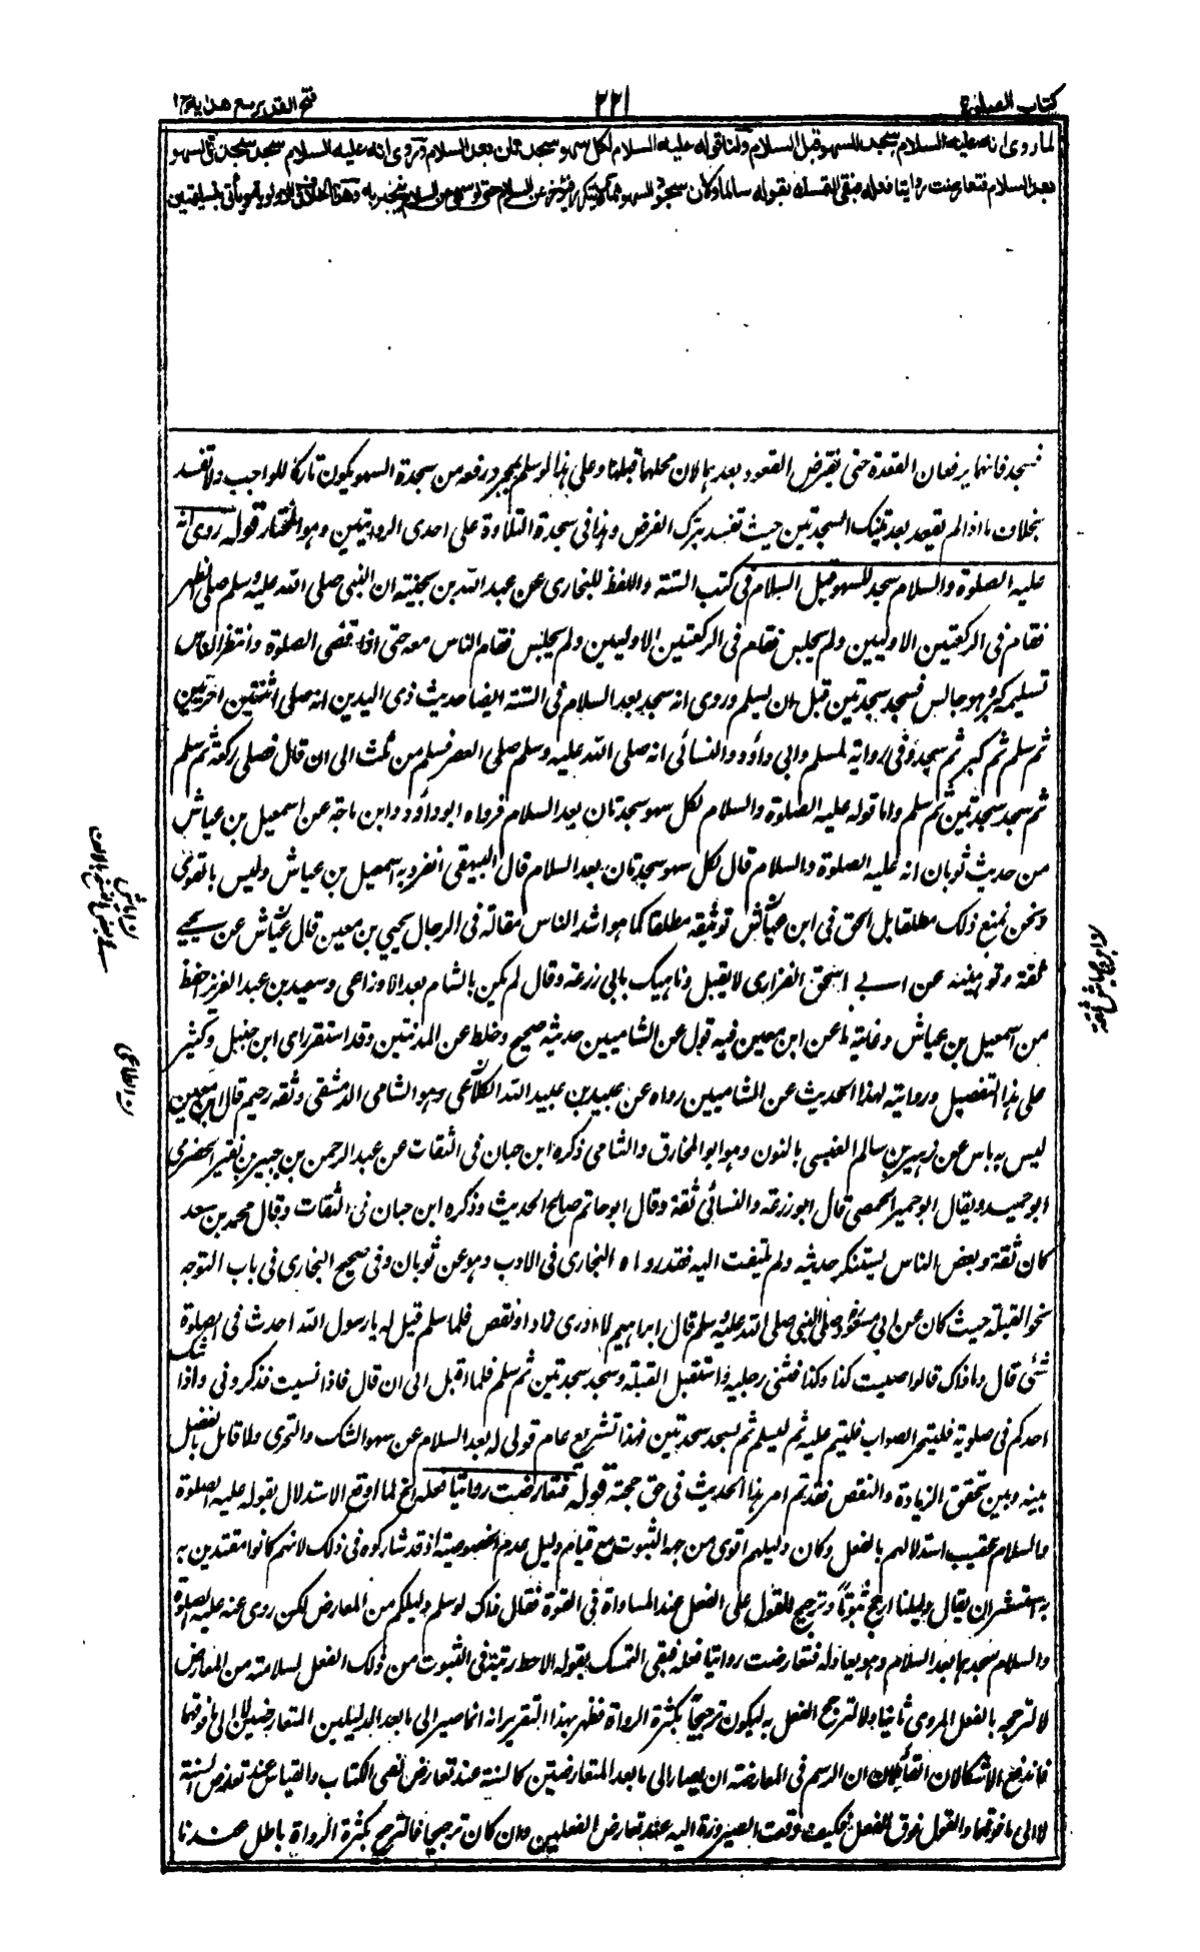 كتاب الصلوة
۲۲۱
فتح القدير مع هدايه ج ۱
لما روى انه عليه السلام سجد للسهو قبل السلام ولنا قوله عليه السلام لكل سهو سجدتان بعد السلام وروى انه عليه السلام سجد سجدتي السهو
بعد السلام فتعارضت روايتا فعله فبقى التمسك بقوله سالما ولان سجود السهو مما لا يتكرر فيؤخر عن السلام حتى لو سهى عن السلام ينجبر به وهذا الخلاف في الاولوية ويأتي بتسليمتين
فسجد فانهما يرفعان القعدة حتى يفترض القعود بعدهما لان محلهما قبلها وعلى هذا لو سلم بمجرد رفعه من سجدة السهو يكون تاركا للواجب ولا تفسد
بخلاف ما اذا لم يقعد بعد تينك السجدتين حيث تفسد بترك الفرض وهذا في سجدة التلاوة على احدى الروايتين وهو المختار قوله روى انه
عليه الصلوة والسلام سجد للسهو قبل السلام في كتب الستة واللفظ للبخاري عن عبد الله بن بحينة ان النبي صلى الله عليه وسلم صلى الظهر
فقام في الركعتين الاوليين ولم يجلس فقام في الركعتين الاوليين ولم يجلس فقام الناس معه حتى اذا قضى الصلوة وانتظر الناس
تسليمه كبر وهو جالس فسجد سجدتين قبل ان يسلم وروى انه سجد بعد السلام في الستة ايضا حديث ذى اليدين انه صلى اثنتين اخريين
ثم سلم ثم كبر ثم سجد وفي رواية لمسلم وابي داؤد والنسائي انه صلى الله عليه وسلم صلى العصر فسلم من ثلث الى ان قال فصلى ركعة ثم سلم
ثم سجد سجدتين ثم سلم واما قوله عليه الصلوة والسلام لكل سهو سجدتان بعد السلام فرواه ابو داؤد وابن ماجة عن اسمعيل بن عياش
من حديث ثوبان انه عليه الصلوة والسلام قال لكل سهو سجدتان بعد السلام قال البيهقي انفرد به اسمعيل بن عياش وليس بالقوى
ونحن نمنع ذلك مطلقا بل الحق في ابن عياش توثيقه مطلقا كما هو اشد الناس مقالة في الرجال يحيى بن معين قال عباس عن يحيى
ثقة وتوهينه عن ابي اسحق الفزارى لا يقبل وناهيك بابي زرعة وقال لم يكن بالشام بعد الاوزاعي وسعيد بن عبد العزيز احفظ
من اسمعيل بن عياش وغاية ما عن ابن معين فيه قول عن الشاميين حديثه صحيح وخلط عن المدنيين وقد استقر راى ابن حنبل وكثير
على هذا التفصيل وروايته لهذا الحديث عن الشاميين رواه عن عبيد بن عبيد الله الكلاعي وهو الشامي الدمشقي وثقه رحيم قال ابن معين
ليس به باس عن زهير بن سالم العنسي بالنون وهو ابو المخارق والشامي ذكره ابن حبان في الثقات عن عبد الرحمن بن جبير بن نفير الحضرمي
ابو حميد ويقال ابو حمير الحمصي قال ابو زرعة والنسائي ثقة وقال ابو حاتم صالح الحديث وذكره ابن حبان في الثقات وقال محمد بن سعد
كان ثقة وبعض الناس يستنكر حديثه ولم يلتفت اليه فقد رواه البخاري في الادب وهو عن ثوبان وفي صحيح البخاري في باب التوجه
نحو القبلة حيث كان عن ابن مسعود صلى النبي صلى الله عليه وسلم قال ابراهيم لا ادرى زاد او نقص فلما سلم قيل له يا رسول الله احدث في الصلوة
شئ قال وما ذاك قالوا صليت كذا وكذا فثنى رجليه واستقبل القبلة وسجد سجدتين ثم سلم فلما اقبل الى ان قال فاذا نسيت فذكروني واذا شك
احدكم في صلوته فليتحر الصواب فليتم عليه ثم ليسلم ثم يسجد سجدتين فهذا تشريع عام قولى له بعد السلام عن سهو الشك والتحرى ولا قائل بالفصل
بينه وبين تحقق الزيادة والنقص فقد تم امر هذا الحديث في حق حجته قوله فتعارضت روايتا فعله الخ لما اوقع الاستدلال بقوله عليه الصلوة
والسلام عقيب استدلالهم بالفعل وكان دليلهم اقوى من جهة الثبوت مع قيام دليل عدم الخصوصية اذ قد شاركوه في ذلك لانهم كانوا مقتدين به
استشعر ان يقال دليلنا ارجح ثبوتا وترجيح للقول على الفعل عند المساواة في القوة فقال ذاك لو سلم دليلكم من المعارض لكن روى عنه عليه الصلوة
والسلام سجدهما بعد السلام وهو يعادله فتعارضت روايتا فعله فبقى التمسك بقوله الاحط رتبة في الثبوت من ذلك الفعل لسلامته من المعارض
لا لترجحه بالفعل المروى ثانيا ولا لترجح الفعل به ليكون ترجيحا بكثرة الرواة فظهر بهذا التقرير انه انما صير الى ما بعد الدليلين المتعارضين لا الى ما فوقهما
فاندفع الاشكالان القائلان ان الرسم في المعارضة ان يصار الى ما بعد المتعارضين كالسنة عند تعارض نصى الكتاب والقياس عند تعارض السنة
لا الى ما فوقها والقول فوق الفعل فكيف وقعت الصيرورة اليه عند تعارض الفعلين وان كان ترجيحا فالترجيح بكثرة الرواة باطل عندنا